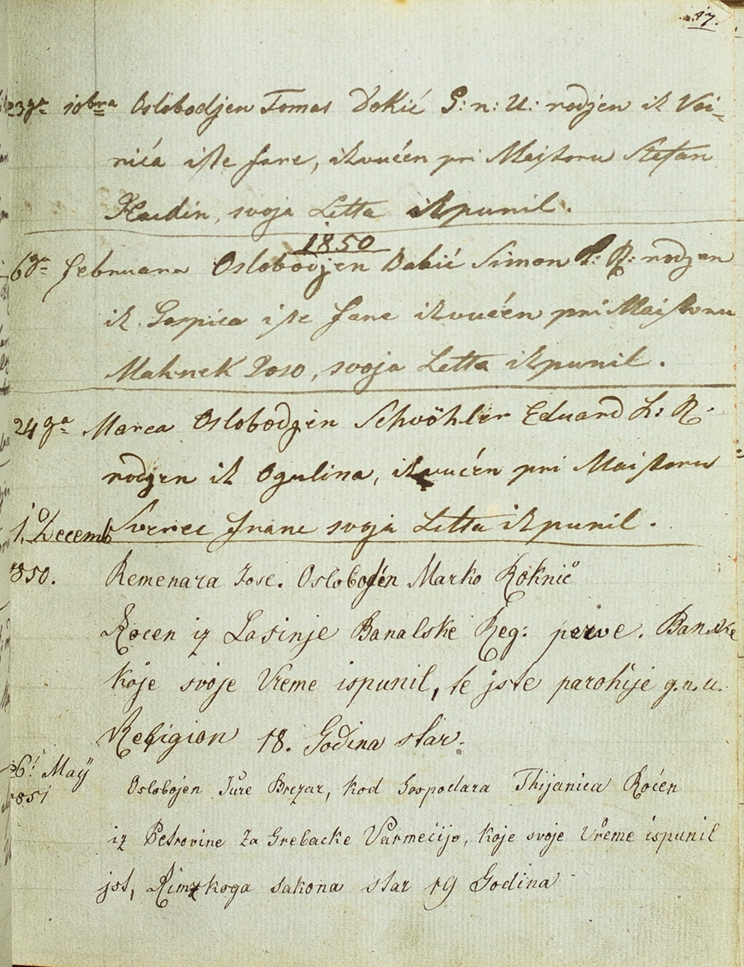 17.
23ga 10bra Oslobodjen Tomas Dokić G: n: U: rodjen iz Voi-
nića iste fare, izvućen pri Majstoru Stefan
Haidin, svoja Letta izpunil.
1850
6ga februara Oslobodjen Babić Simon R: rodjen
iz Gospića iste fare izvućen pri Majstoru
svoja Letta izpunil.
24ga Marca Oslobodjen Schvöhler Eduard L: R.
rodjen iz Ogulina, izvućen pri Maistoru
Sverec svoja Letta izpunil.
1, Decemb
1850. Remenara Jose. Oslobođen Marko Roknić
Rocen iz Lasinje Banalske Reg: perve. Banske
koje svoje Vreme ispunil, te jste parohije g.n.u.
Religion 18. Godina star.
26t Maÿ
1851 Oslobojen Jure Brezar, kod Gospodara Thijanica Roćen
iz Petrovine Za Grebačke Varmećije, koje svoje Vreme ispunil
jst, Rimskoga sakona star 19 Godina